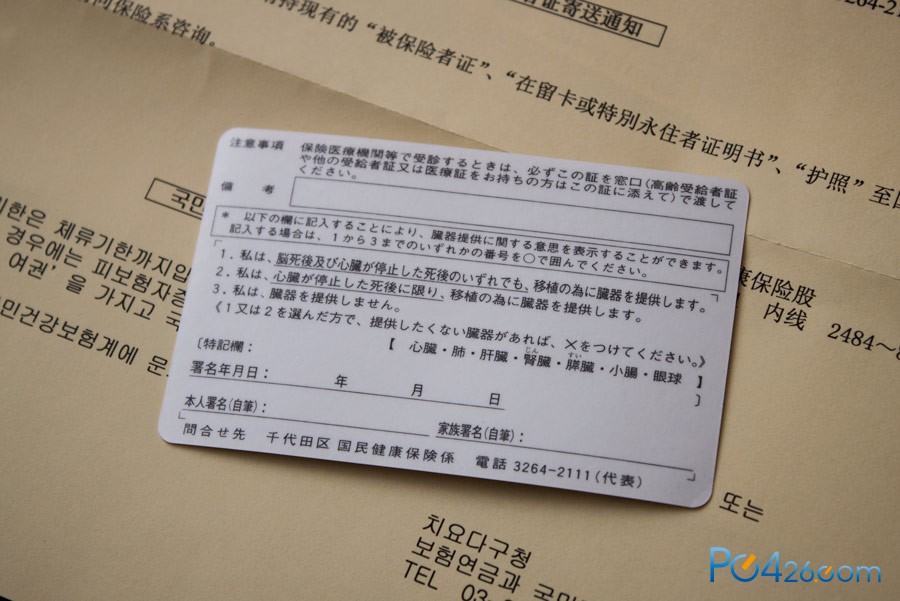 证寄送通知
3264-21
持现有的“被保险者证”、“在留卡或特别永住者证明书”、“护照”至国
同保险系咨询。
注意事項 保険医療機関等で受診するときは、必ずこの証を窓口(高齢受給者証
や他の受給者証又は医療証をお持ちの方はこの証に添えて)で渡して
ください。
備 考
* 以下の欄に記入することにより、臓器提供に関する意思を表示することができます。
記入する場合は、1から3までのいずれかの番号を○で囲んでください。
1. 私は、脳死後及び心臓が停止した死後のいずれでも、移植の為に臓器を提供します。
2. 私は、心臓が停止した死後に限り、移植の為に臓器を提供します。
3. 私は、臓器を提供しません。
《1又は2を選んだ方で、提供したくない臓器があれば、×をつけてください。》
【 心臓・肺・肝臓・腎臓・膵臓・小腸・眼球 】
じん すい
〔特記欄: 〕
署名年月日: 年 月 日
本人署名(自筆):
家族署名(自筆):
問合せ先 千代田区 国民健康保険係 電話 3264-2111(代表)
국민
기한은 체류기한까지입
경우에는 피보험자증
여권’을 가지고 국
민건강보험계에 문
康保险股
内线 2484~8
또는
치요다구청
보험연금과 국민
TEL 03-
PC426.com